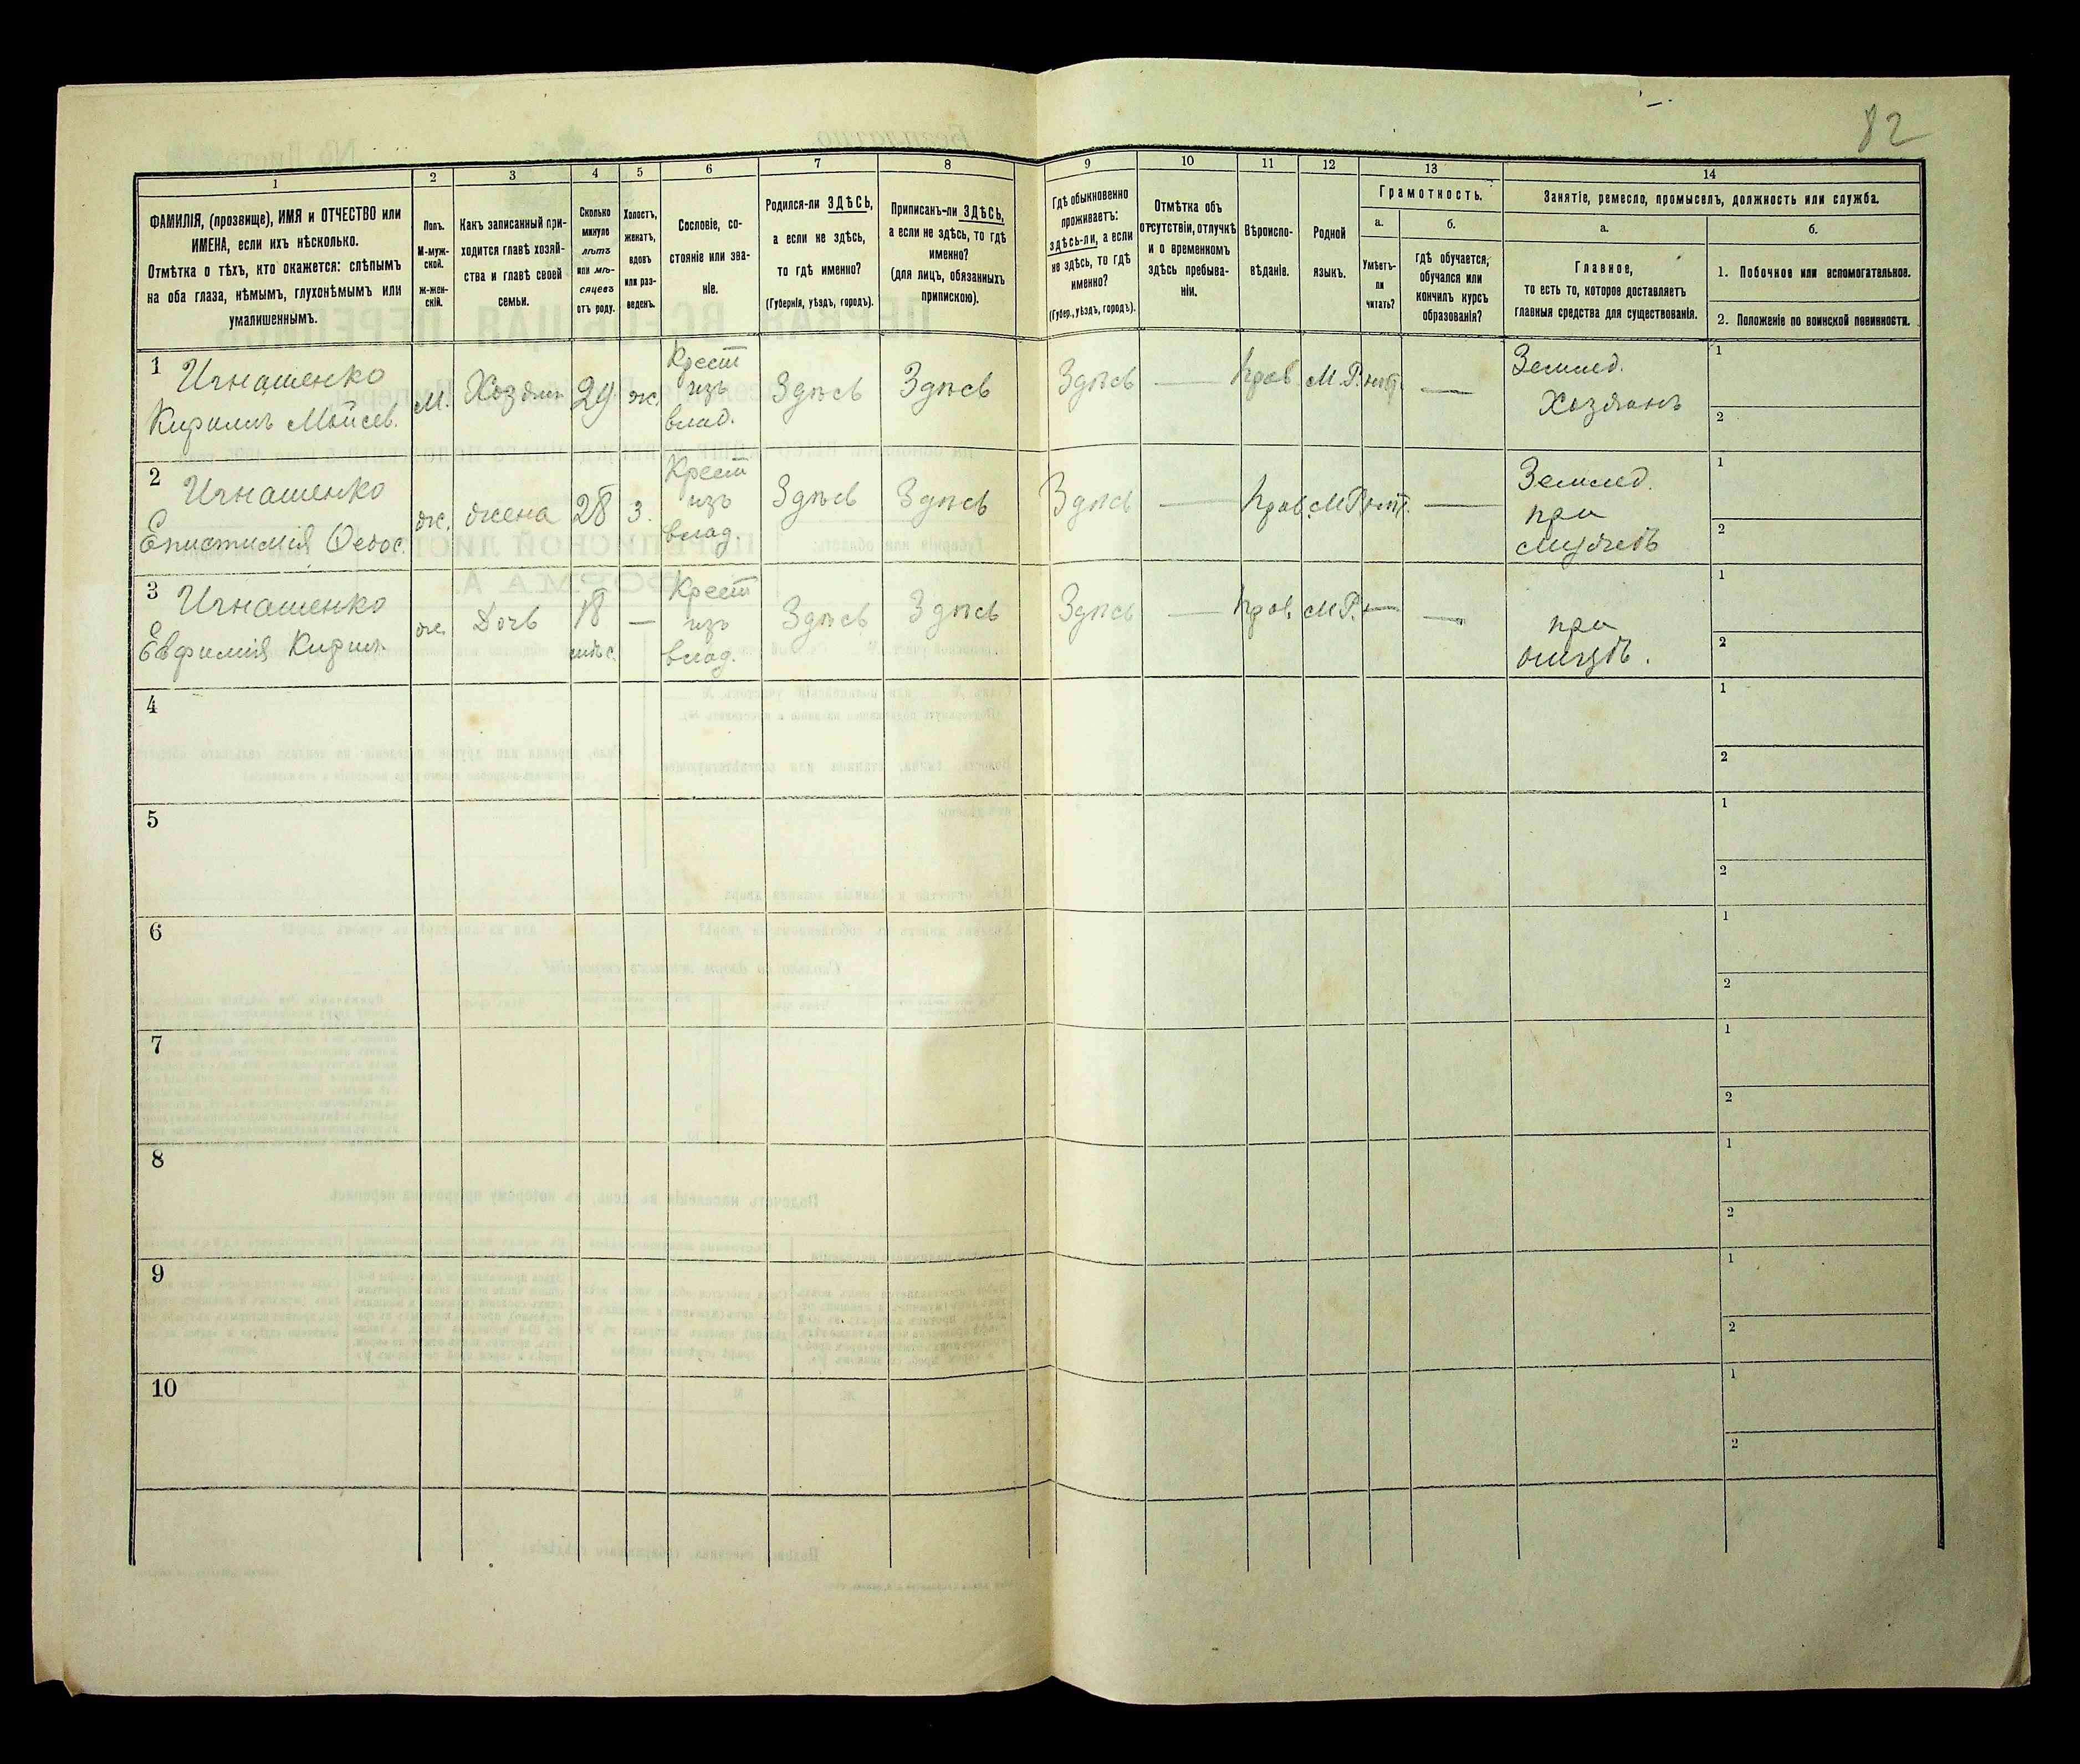 82
1
2
3
4
5
6
7
8
9
10
11
12
13
14
ФАМИЛІЯ, (прозвище), ИМЯ и ОТЧЕСТВО или
ИМЕНА, если ихъ нѣсколько.
Отмѣтка о тѣхъ, кто окажется: слѣпымъ
на оба глаза, нѣмымъ, глухонѣмымъ или
умалишеннымъ.
Полъ.
М-муж-
ской.
Ж-жен-
скій.
Какъ записанный при-
ходится главѣ хозяй-
ства и главѣ своей
семьи.
Сколько
минуло
лѣтъ
или мѣ-
сяцевъ
отъ роду.
Холостъ,
женатъ,
вдовъ
или раз-
веденъ.
Сословіе, со-
стояніе или зва-
ніе.
Родился-ли ЗДѢСЬ,
а если не здѣсь,
то гдѣ именно?
(Губернія, уѣздъ, городъ).
Приписанъ-ли ЗДѢСЬ,
а если не здѣсь, то гдѣ
именно?
(для лицъ, обязанныхъ
припискою).
Гдѣ обыкновенно
проживаетъ:
здѣсь-ли, а если
не здѣсь, то гдѣ
именно?
(Губер., уѣздъ, городъ).
Отмѣтка объ
отсутствіи, отлучкѣ
и о временномъ
здѣсь пребыва-
ніи.
Вѣроиспо-
вѣданіе.
Родной
языкъ.
Грамотность.
а.
Умѣетъ-
ли
читать?
б.
гдѣ обучается,
обучался или
кончилъ курсъ
образованія?
Занятіе, ремесло, промыселъ, должность или служба.
а.
Главное,
то есть то, которое доставляетъ
главныя средства для существованія.
б.
1. Побочное или вспомогательное.
2. Положеніе по воинской повинности.
1
Игнашенко
Кирилъ Мойсев.
М.
Хозяин
29
ж.
Крест
изъ
влад.
Здѣсь
Здѣсь
Здѣсь
—
Прав.
М. Р.
нѣт.
—
Землед.
Хозяинъ
1
2
2
Игнашенко
Епистимія Федос.
ж.
жена
28
з.
Крест
изъ
влад.
Здѣсь
Здѣсь
Здѣсь
—
Прав.
М. Р.
нѣт.
—
Землед.
при
мужѣ
1
2
3
Игнашенко
Евфимія Кирил.
ж.
Дочь
18
мѣс.
—
Крест
изъ
влад.
Здѣсь
Здѣсь
Здѣсь
—
Прав.
М. Р.
—
—
при
отцѣ.
1
2
4
1
2
5
1
2
6
1
2
7
1
2
8
1
2
9
1
2
10
1
2